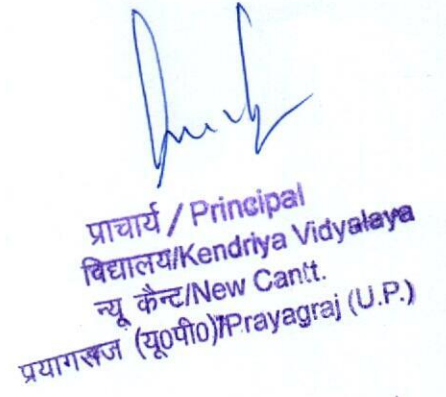 प्राचार्य / Principal
विद्यालय/Kendriya Vidyalaya
न्यू कैन्ट/New Cantt.
प्रयागराज (यू0पी0)/Prayagraj (U.P.)